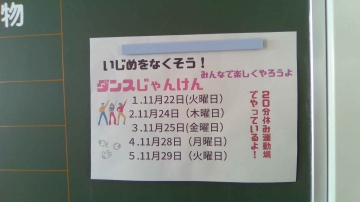 物
いじめをなくそう！
みんなで楽しくやろうよ
ダンスじゃんけん
1.11月22日(火曜日)
2.11月24日（木曜日）
3.11月25日(金曜日)
4.11月28日（月曜日）
5.11月29日（火曜日）
20分休み運動場
でやっているよ！